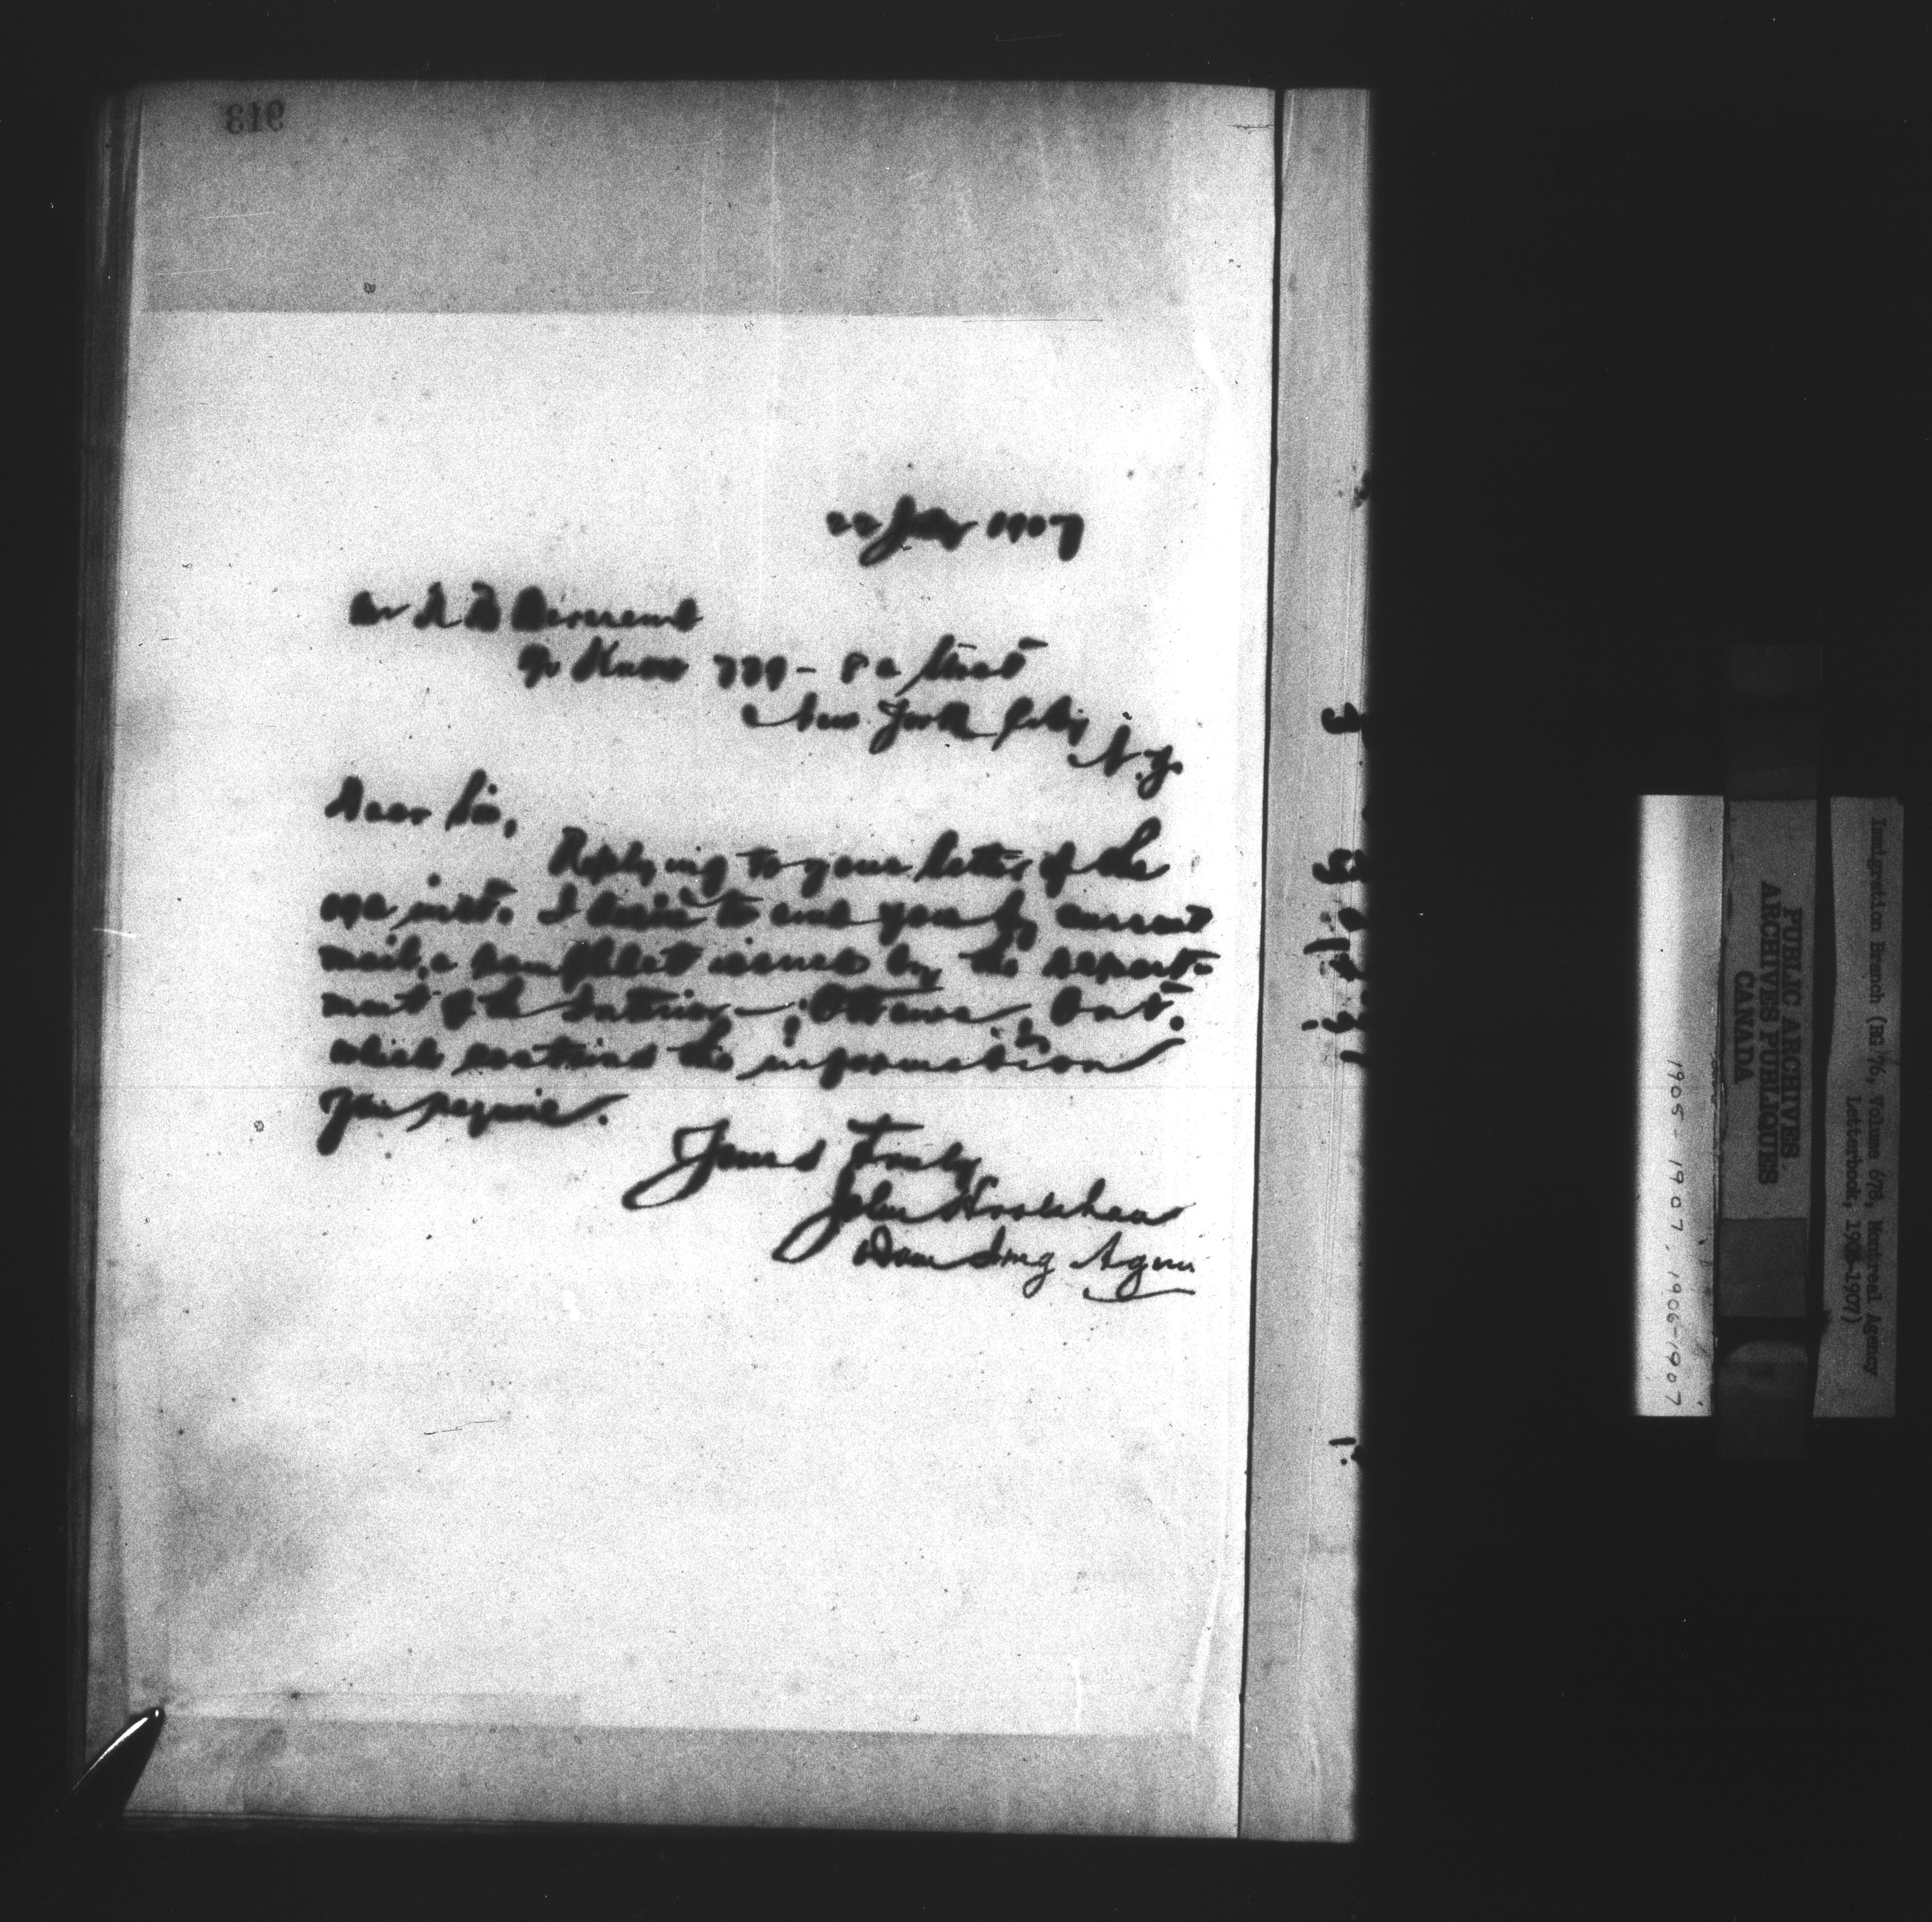 913
22 July 1907
Mr
c/o 779 - 8 e Street
New York City
N.Y.
Dear Sir,
Replying to your letter of the
inst. I desire to send you by current
mail, a pamphlet issued by the Depart-
ment of the Interior, Ottawa, Ont.
which contains the information
you require.
Yours Truly,
John Hoolahan
Dom Img Agent
PUBLIC ARCHIVES
ARCHIVES PUBLIQUES
CANADA
Immigration Branch (RG 76, Volume 678, Montreal Agency
Letterbook, 1905-1907)
1905-1907, 1906-1907